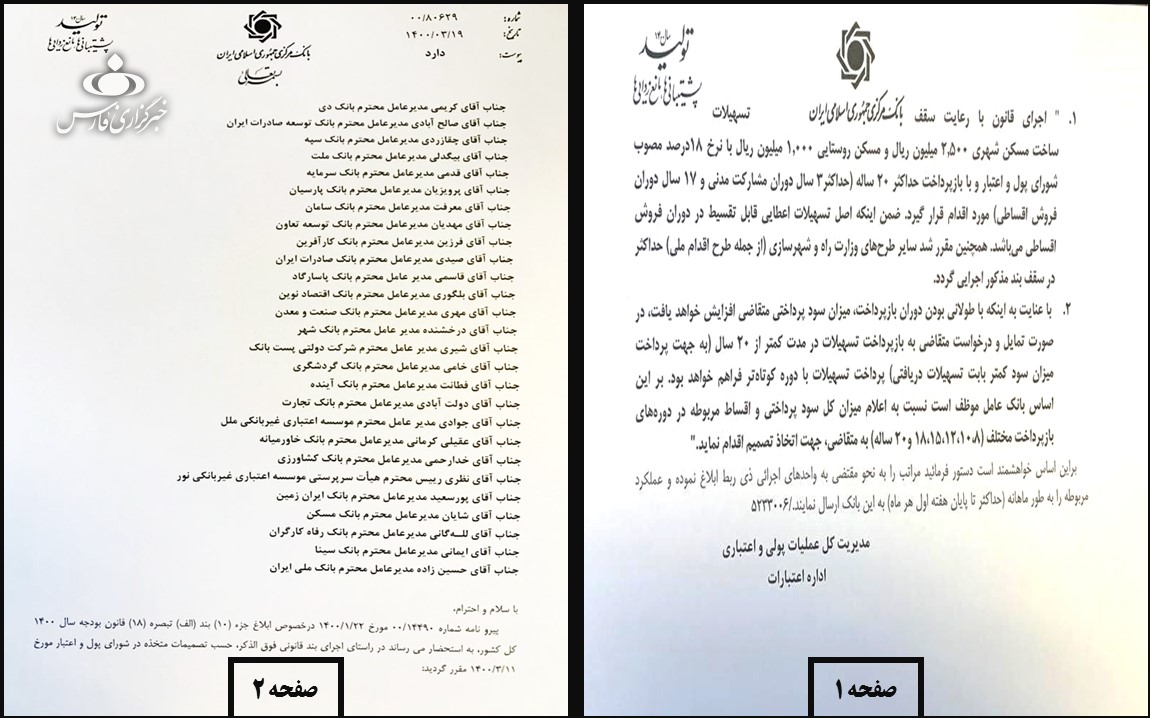 سال ۱۴۰۰
تولید
پشتیبانی‌ها مانع‌زدایی‌ها
بانک مرکزی جمهوری اسلامی ایران
۱. " اجرای قانون با رعایت سقف تسهیلات
ساخت مسکن شهری ۲,۵۰۰ میلیون ریال و مسکن روستایی ۱,۰۰۰ میلیون ریال با نرخ ۱۸درصد مصوب
شورای پول و اعتبار و با بازپرداخت حداکثر ۲۰ ساله (حداکثر۳ سال دوران مشارکت مدنی و ۱۷ سال دوران
فروش اقساطی) مورد اقدام قرار گیرد. ضمن اینکه اصل تسهیلات اعطایی قابل تقسیط در دوران فروش
اقساطی می‌باشد. همچنین مقرر شد سایر طرح‌های وزارت راه و شهرسازی (از جمله طرح اقدام ملی) حداکثر
در سقف بند مذکور اجرایی گردد.
۲. با عنایت به اینکه با طولانی بودن دوران بازپرداخت، میزان سود پرداختی متقاضی افزایش خواهد یافت، در
صورت تمایل و درخواست متقاضی به بازپرداخت تسهیلات در مدت کمتر از ۲۰ سال (به جهت پرداخت
میزان سود کمتر بابت تسهیلات دریافتی) پرداخت تسهیلات با دوره کوتاه‌تر فراهم خواهد بود. بر این
اساس بانک عامل موظف است نسبت به اعلام میزان کل سود پرداختی و اقساط مربوطه در دوره‌های
بازپرداخت مختلف (۱۸،۱۵،۱۲،۱۰،۸ و۲۰ ساله) به متقاضی، جهت اتخاذ تصمیم اقدام نماید."
براین اساس خواهشمند است دستور فرمائید مراتب را به نحو مقتضی به واحدهای اجرائی ذی ربط ابلاغ نموده و عملکرد
مربوطه را به طور ماهانه (حداکثر تا پایان هفته اول هر ماه) به این بانک ارسال نمایند./۵۲۳۳۰۰۶
مدیریت کل عملیات پولی و اعتباری
اداره اعتبارات
صفحه ۱
سال ۱۴۰۰
تولید
پشتیبانی‌ها مانع‌زدایی‌ها
خبرگزاری فارس
بانک مرکزی جمهوری اسلامی ایران
بسمه تعالی
شماره: ۰۰/۸۰۶۲۹
تاریخ: ۱۴۰۰/۰۳/۱۹
پیوست: دارد
جناب آقای کریمی مدیرعامل محترم بانک دی
جناب آقای صالح آبادی مدیرعامل محترم بانک توسعه صادرات ایران
جناب آقای چقازردی مدیرعامل محترم بانک سپه
جناب آقای بیگدلی مدیرعامل محترم بانک ملت
جناب آقای قدمی مدیرعامل محترم بانک سرمایه
جناب آقای پرویزیان مدیرعامل محترم بانک پارسیان
جناب آقای معرفت مدیرعامل محترم بانک سامان
جناب آقای مهدیان مدیرعامل محترم بانک توسعه تعاون
جناب آقای فرزین مدیرعامل محترم بانک کارآفرین
جناب آقای صیدی مدیرعامل محترم بانک صادرات ایران
جناب آقای قاسمی مدیر عامل محترم بانک پاسارگاد
جناب آقای بلگوری مدیرعامل محترم بانک اقتصاد نوین
جناب آقای مهری مدیرعامل محترم بانک صنعت و معدن
جناب آقای درخشنده مدیر عامل محترم بانک شهر
جناب آقای شیری مدیر عامل محترم شرکت دولتی پست بانک
جناب آقای خامی مدیرعامل محترم بانک گردشگری
جناب آقای فطانت مدیرعامل محترم بانک آینده
جناب آقای دولت آبادی مدیرعامل محترم بانک تجارت
جناب آقای جوادی مدیر عامل محترم موسسه اعتباری غیربانکی ملل
جناب آقای عقیلی کرمانی مدیرعامل محترم بانک خاورمیانه
جناب آقای خدارحمی مدیرعامل محترم بانک کشاورزی
جناب آقای نظری رییس محترم هیأت سرپرستی موسسه اعتباری غیربانکی نور
جناب آقای پورسعید مدیرعامل محترم بانک ایران زمین
جناب آقای شایان مدیرعامل محترم بانک مسکن
جناب آقای لله‌گانی مدیرعامل محترم بانک رفاه کارگران
جناب آقای ایمانی مدیرعامل محترم بانک سینا
جناب آقای حسین زاده مدیرعامل محترم بانک ملی ایران
با سلام و احترام،
پیرو نامه شماره ۰۰/۱۴۴۹۰ مورخ ۱۴۰۰/۱/۲۲ درخصوص ابلاغ جزء (۱۰) بند (الف) تبصره (۱۸) قانون بودجه سال ۱۴۰۰
کل کشور، به استحضار می رساند در راستای اجرای بند قانونی فوق الذکر، حسب تصمیمات متخذه در شورای پول و اعتبار مورخ
۱۴۰۰/۳/۱۱ مقرر گردید:
صفحه ۲